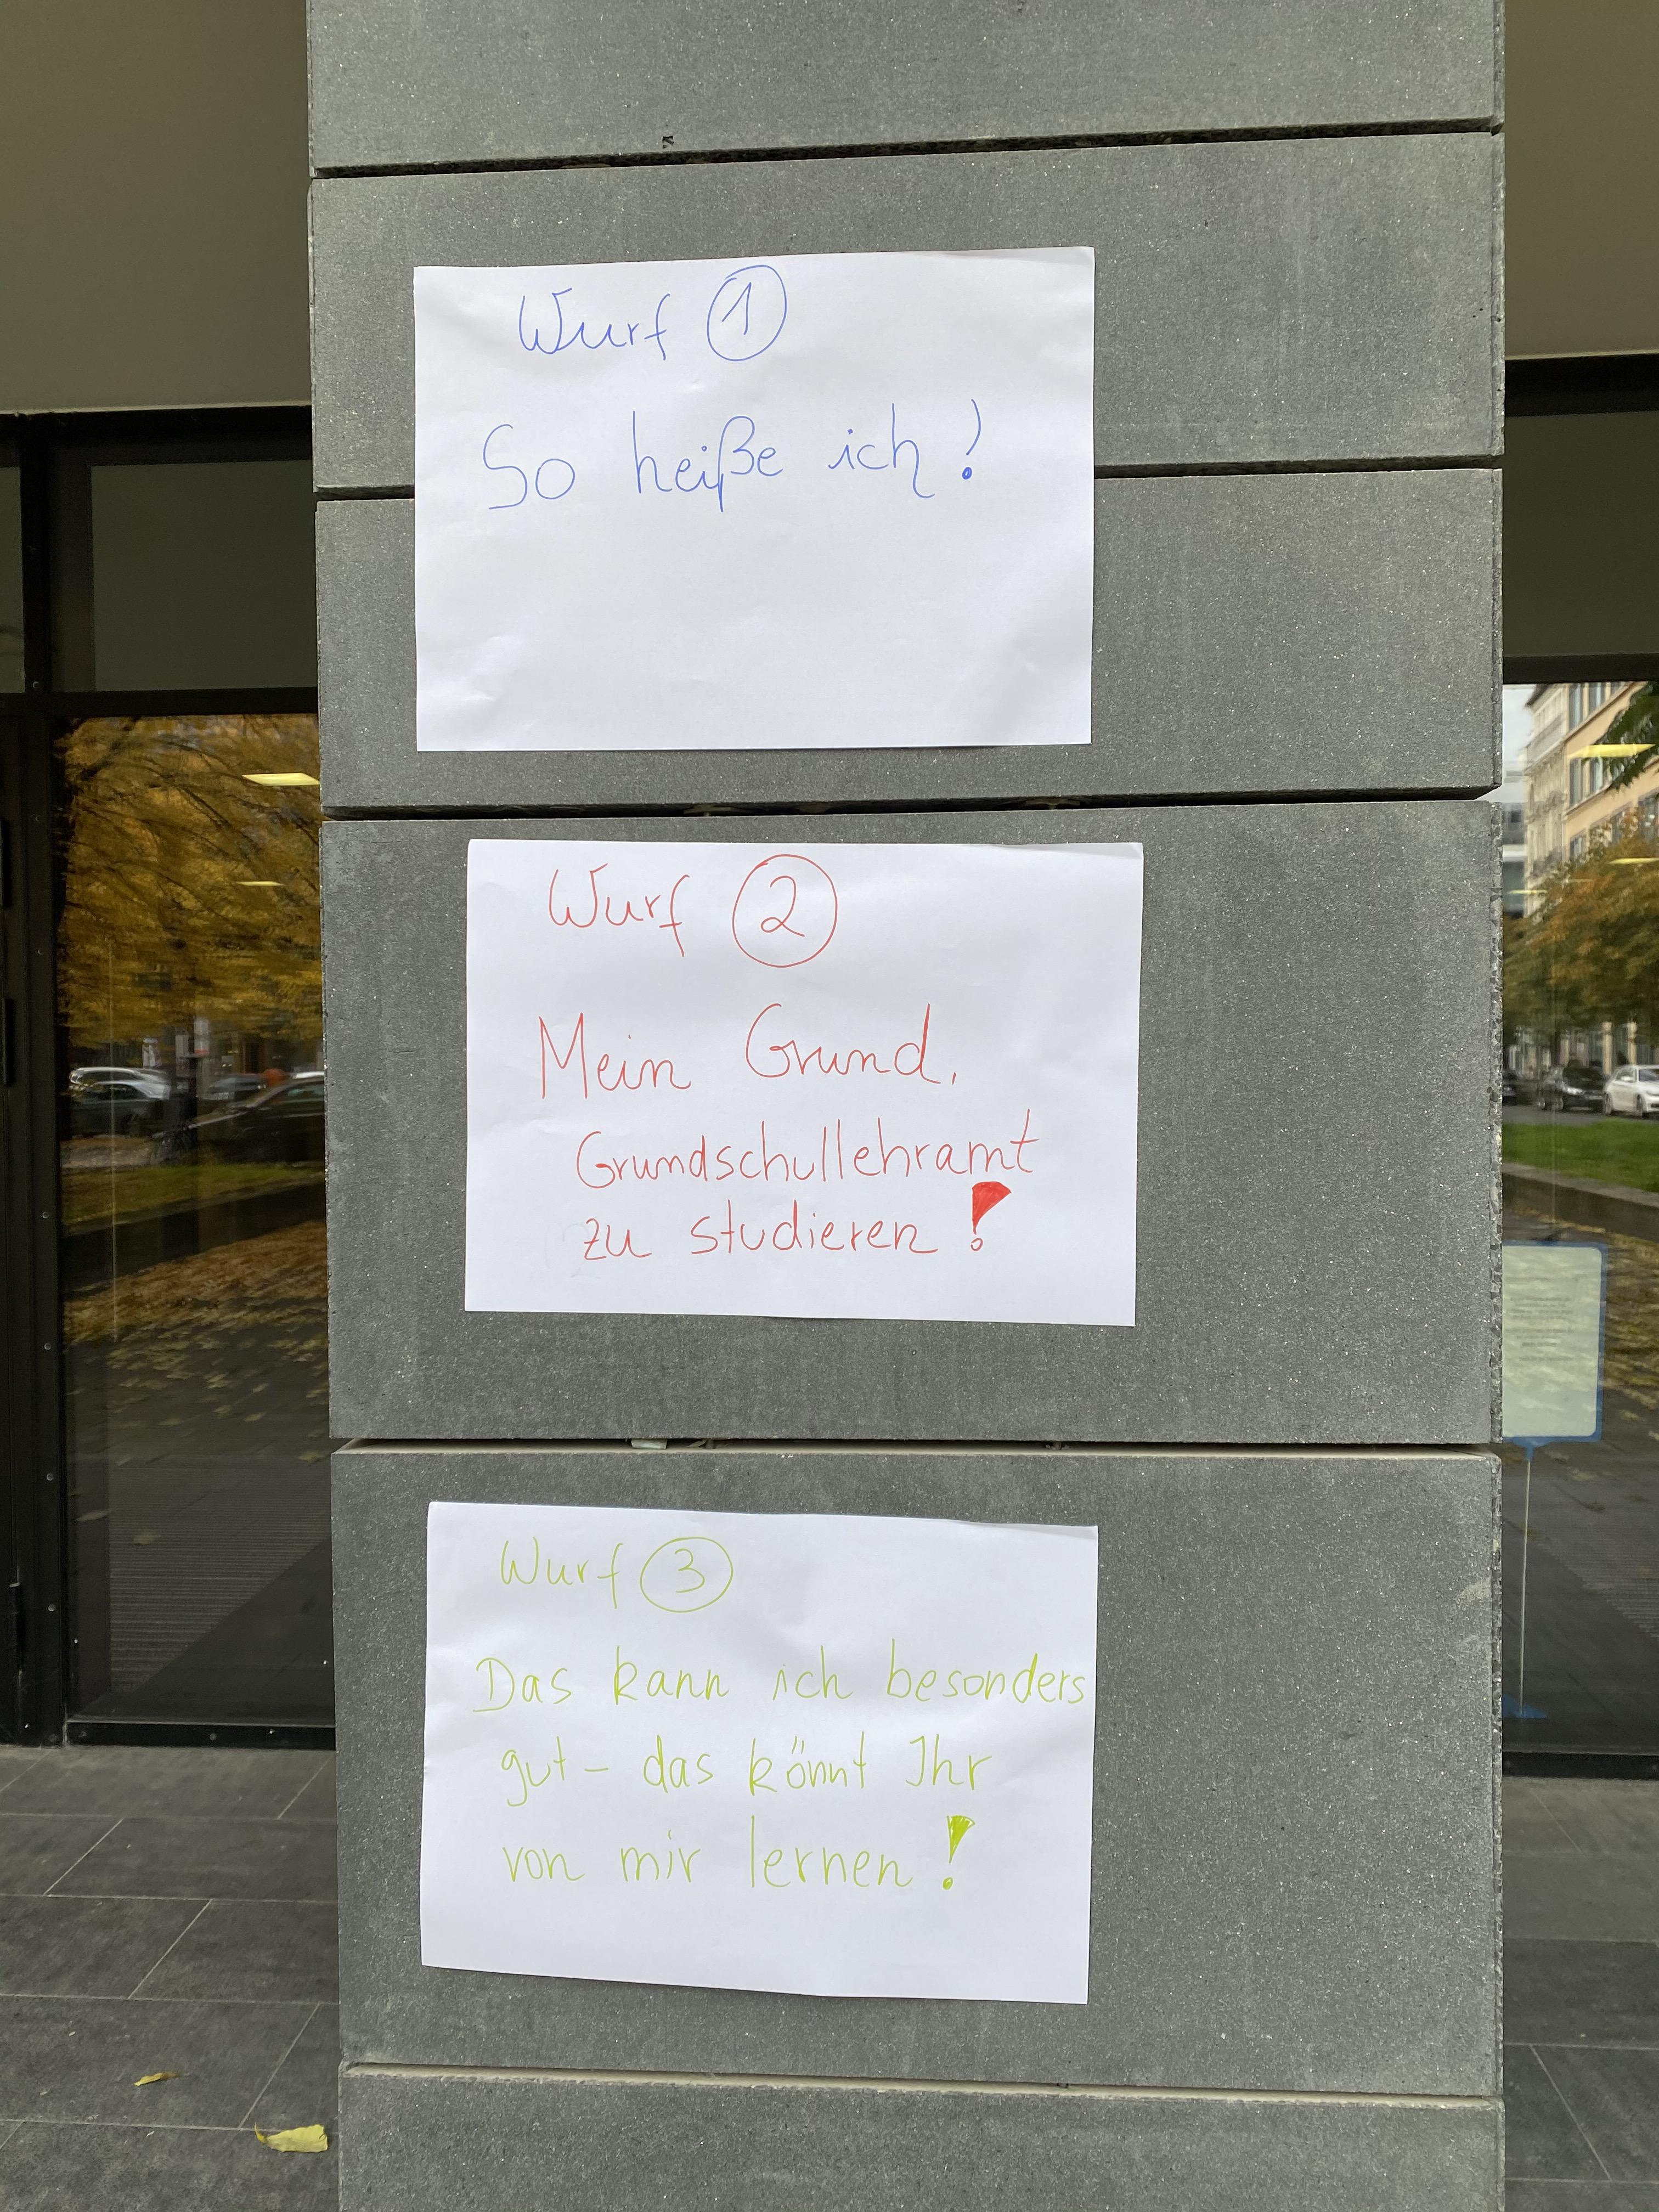 Wurf 1
So heiße ich!
Wurf 2
Mein Grund,
Grundschullehramt
zu studieren!
Wurf 3
Das kann ich besonders
gut - das könnt Ihr
von mir lernen!